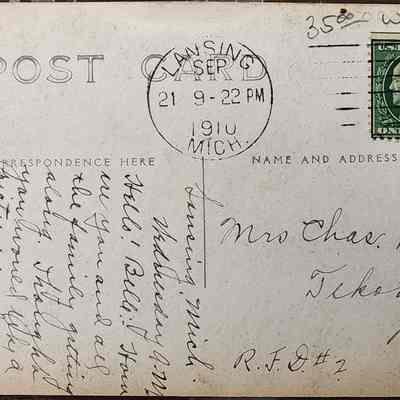 35.00 W
POST CARD
LANSING
SEP
21 9-22 PM
1910
MICH.
U.S.
RRESPONDENCE HERE
NAME AND ADDRESS
Lansing, Mich.
Wednesday A.M
Hello! Belle! How
are you and all
the family getting
along. Thought
you would like a
Mrs Chas.
Teko
R.F.D. #2